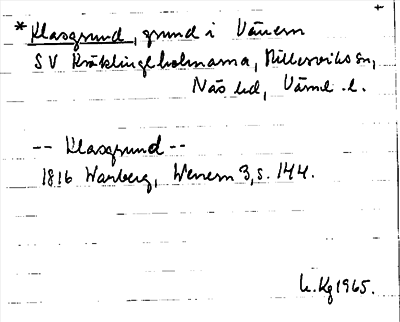 * Klasgrund, grund i Vänern
SV Kräklingeholmarna, Millesviks sn,
Näs hd, Värml. l.
-- Klasgrund --
1816 Warberg, Wenern 3, s. 144.
L. Kg 1965.